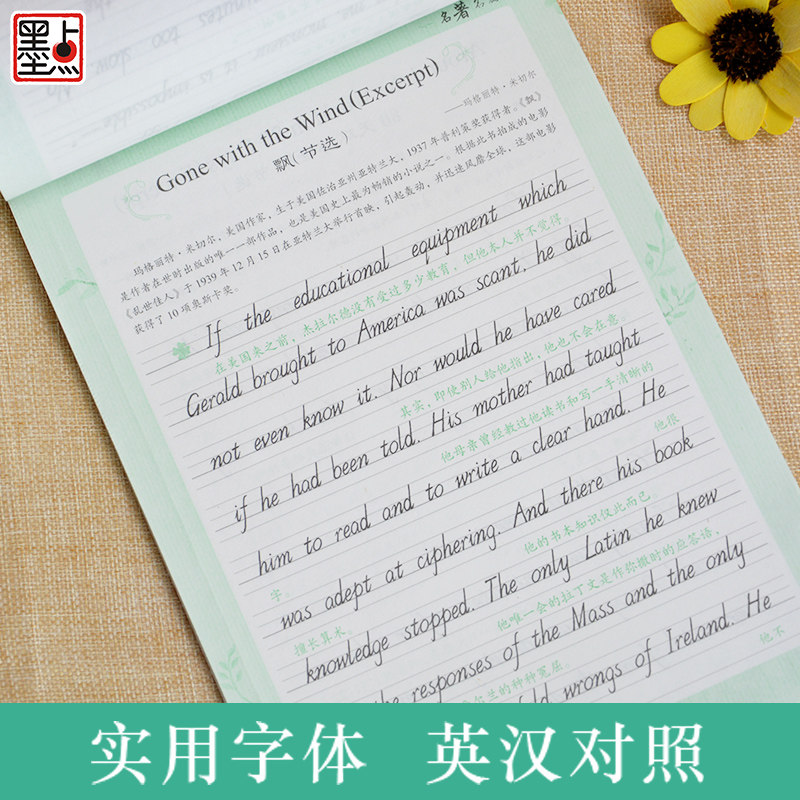 墨点
名著
Gone with the Wind(Excerpt)
飘(节选)
——玛格丽特·米切尔
玛格丽特·米切尔，美国作家，生于美国佐治亚州亚特兰大，1937年普利策奖获得者。《飘》
是作者在世时出版的唯一一部作品，也是美国史上最为畅销的小说之一。根据此书拍成的电影
《乱世佳人》于1939年12月15日在亚特兰大举行首映，引起轰动，并迅速风靡全球，这部电影
获得了10项奥斯卡奖。
If the educational equipment which
在美国来之前，杰拉尔德没有受过多少教育，但他本人并不觉得。
Gerald brought to America was scant, he did
not even know it. Nor would he have cared
其实，即使别人给他指出，他也不会在意。
if he had been told. His mother had taught
他母亲曾经教过他读书和写一手清晰的
him to read and to write a clear hand. He
字。 他很
was adept at ciphering. And there his book
擅长算术。 他的书本知识仅此而已。
knowledge stopped. The only Latin he knew
他唯一会的拉丁文是作弥撒时的应答语，
the responses of the Mass and the only
尔兰的种种冤屈。 他不
wrongs of Ireland. He
实用字体 英汉对照